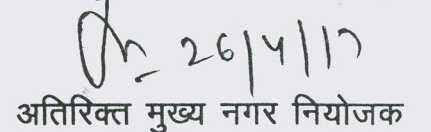 26/4/17
अतिरिक्त मुख्य नगर नियोजक